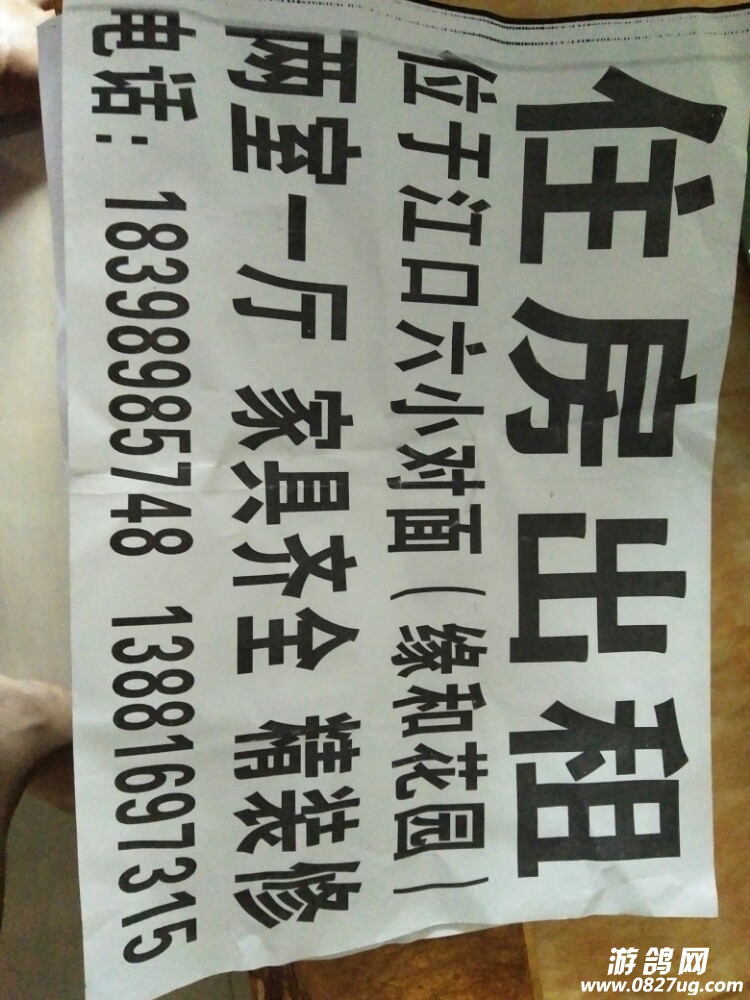 住房出租
位于江口六小对面(缘和花园)
两室一厅 家具齐全 精装修
电话: 18398985748 13881697315
游鸽网
www.0827ug.com